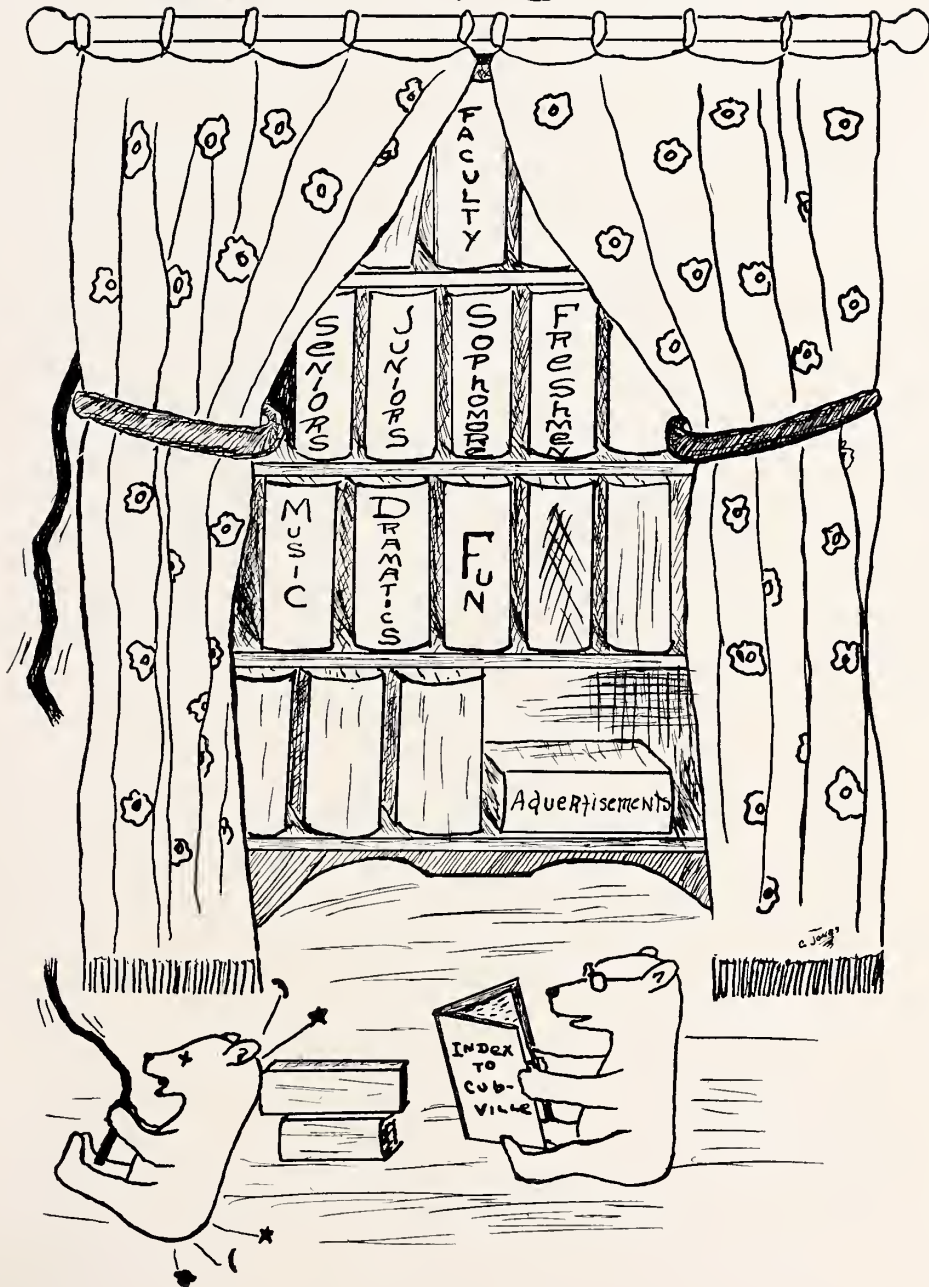 FACULTY
SENIORS
JUNIORS
SOPHOMORE
FRESHMEN
MUSIC
DRAMATICS
FUN
Advertisements
C. Jones
INDEX
TO
CUB-
VILLE